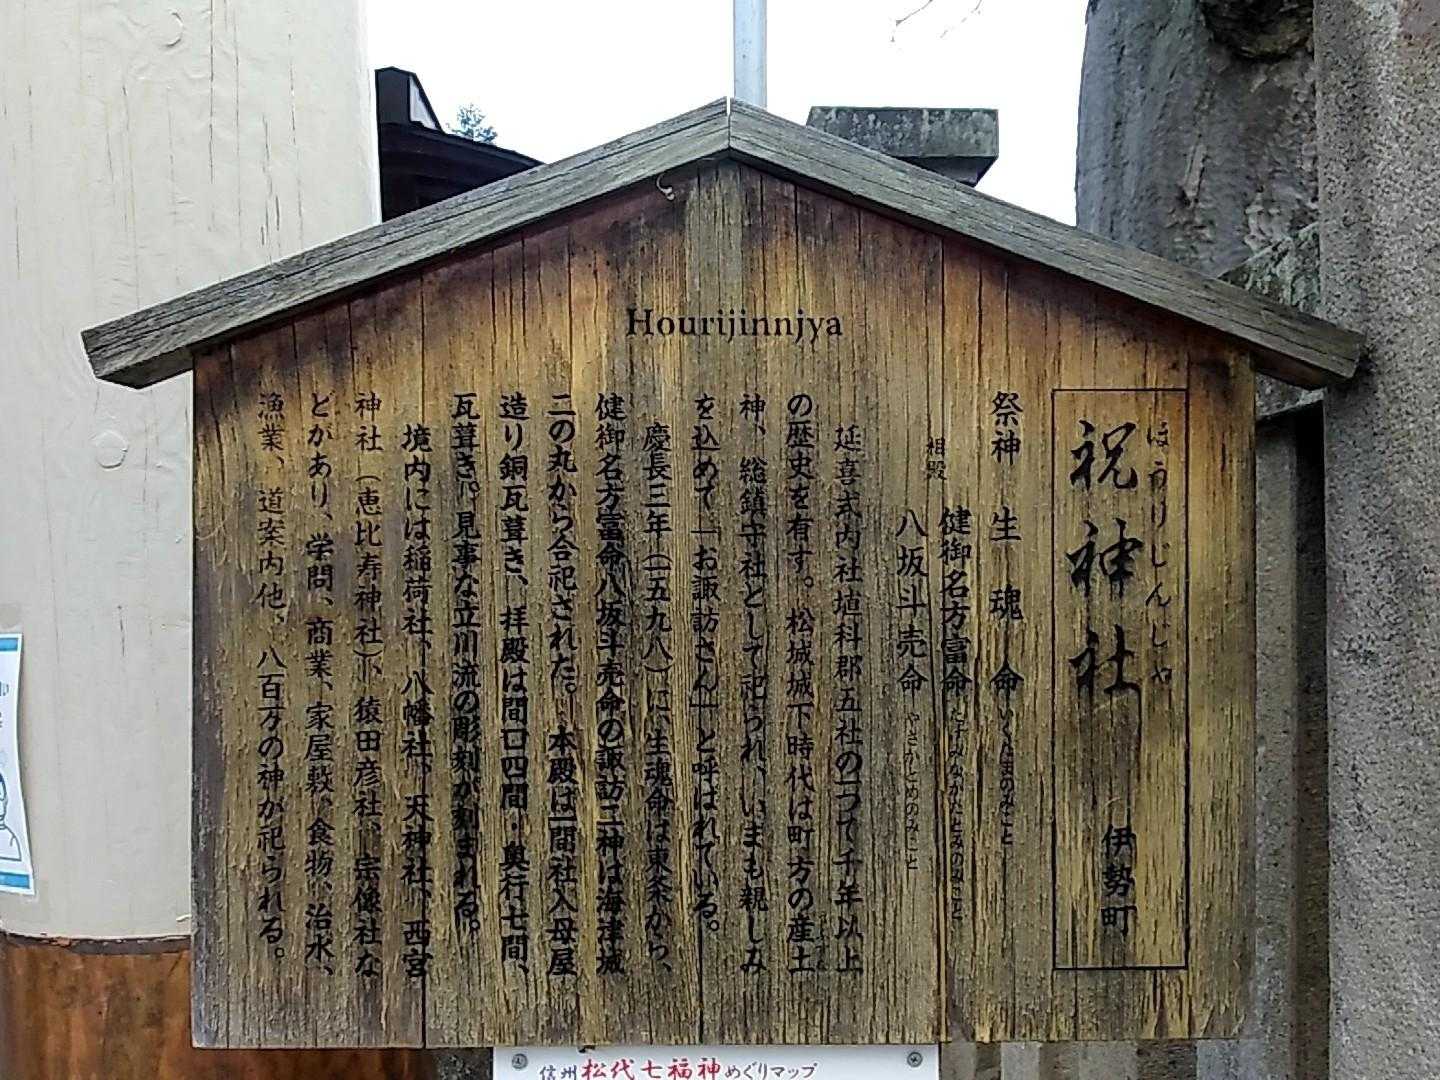 Hourijinnjya
ほうりじんじゃ
祝神社 伊勢町
祭神 生魂命 いくたまのみこと
相殿 健御名方富命 たけみなかたとみのみこと
八坂斗売命 やさかとめのみこと
延喜式内社埴科郡五社の一つで千年以上
の歴史を有す。松城城下時代は町方の産土
神、総鎮守社として祀られ、いまも親しみ
を込めて「お諏訪さん」と呼ばれている。
慶長三年(一五九八)に、生魂命は東条から、
健御名方富命八坂斗売命の諏訪二神は海津城
二の丸から合祀された。本殿は一間社入母屋
造り銅瓦葺き、拝殿は間口四間・奥行七間、
瓦葺き。見事な立川流の彫刻が刻まれる。
境内には稲荷社、八幡社、天神社、西宮
神社(恵比寿神社)、猿田彦社、宗像社な
どがあり、学問、商業、家屋敷、食物、治水、
漁業、道案内他、八百万の神が祀られる。
信州松代七福神めぐりマップ